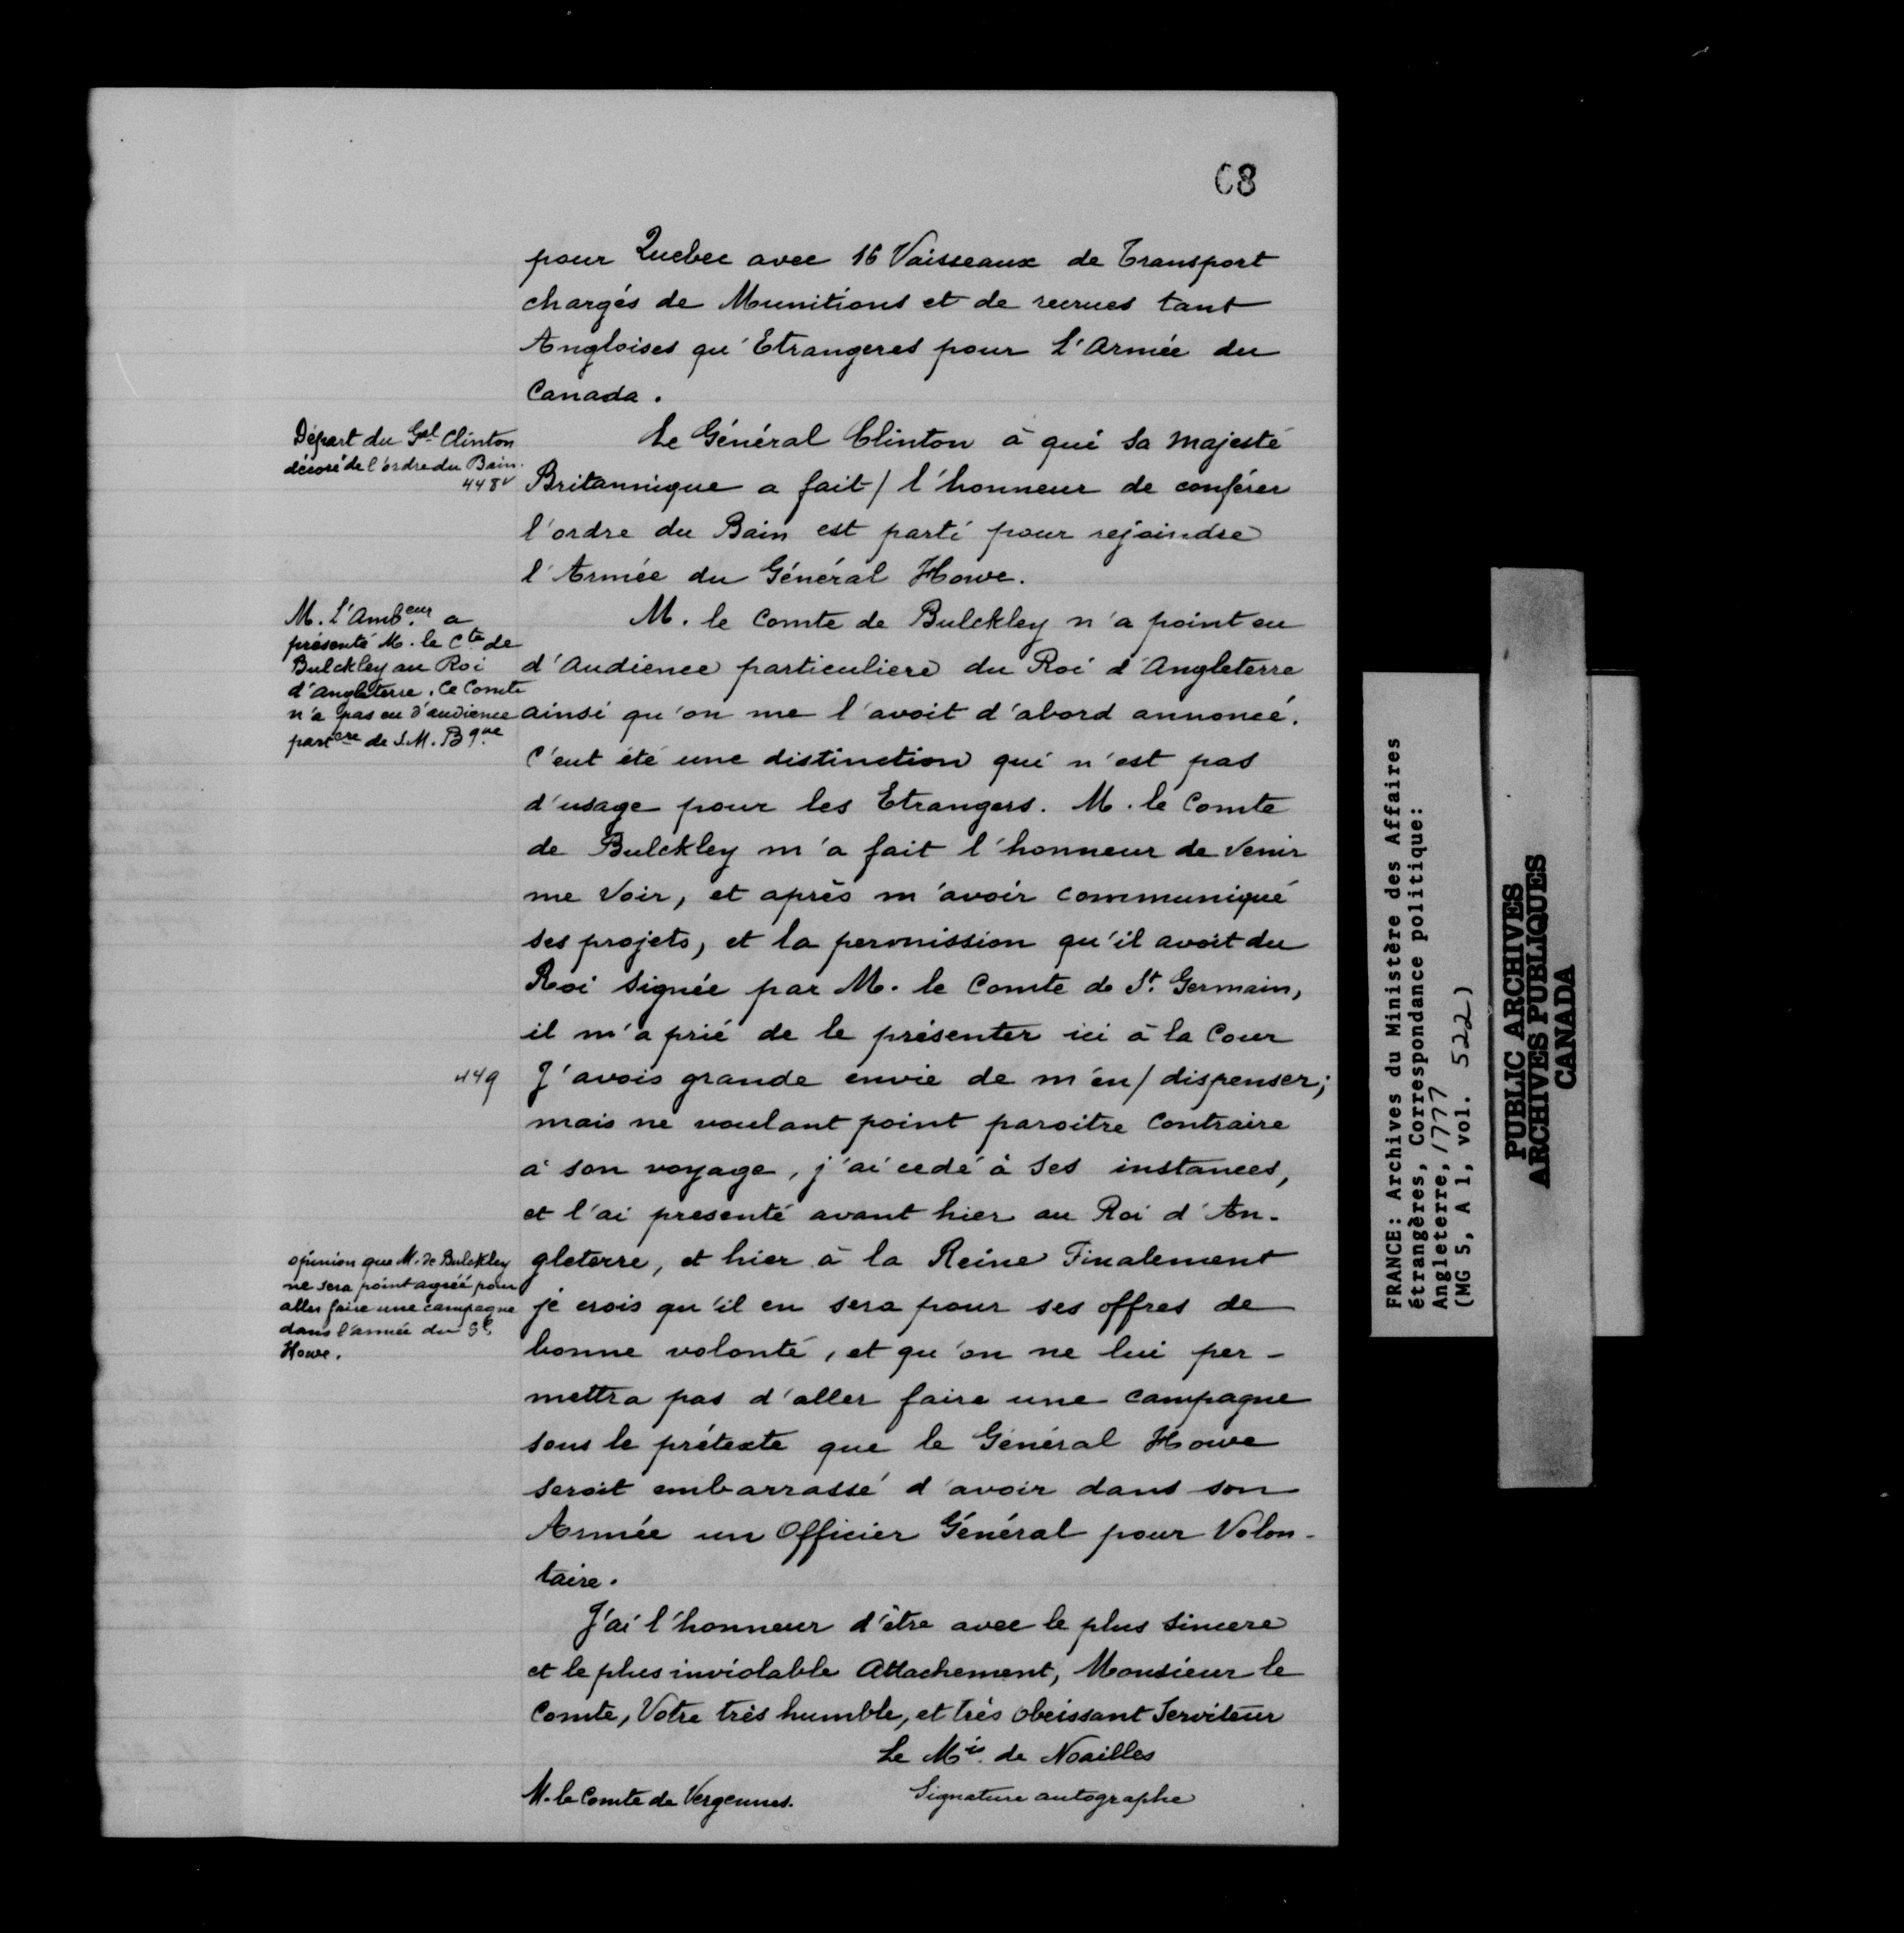 68
pour Quebec avec 16 Vaisseaux de Transport
chargés de Munitions et de recrues tant
Angloises qu'Etrangeres pour l'Armée du
Canada.
Départ du Gal Clinton
décoré de l'ordre du Bain.
448v
Le Général Clinton à qui Sa Majesté
Britannique a fait/ l'honneur de conférer
l'ordre du Bain est parti pour rejoindre
l'Armée du Général Howe.
M. L'Amb.eur a
présenté M. le Cte de
Bulckley au Roi
d'Angleterre. Ce Comte
n'a pas eu d'audience
partcre de S.M. Bque
M. le Comte de Bulckley n'a point eu
d'Audience particuliere du Roi d'Angleterre
ainsi qu'on me l'avoit d'abord annoncé.
C'eut été une distinction qui n'est pas
d'usage pour les Etrangers. M. le Comte
de Bulckley m'a fait l'honneur de venir
me voir, et après m'avoir communiqué
ses projets, et la permission qu'il avoit du
Roi signée par M. le Comte de St. Germain,
il m'a prié de le présenter ici à la Cour
449
J'avois grande envie de m'en/ dispenser;
mais ne voulant point paroitre contraire
à son voyage, j'ai cedé à ses instances,
et l'ai presenté avant hier au Roi d'An-
gleterre, et hier à la Reine Finalement
opinion que M. de Bulckley
ne sera point agréé pour
aller faire une campagne
dans l'armée du Gl
Howe.
je crois qu'il en sera pour ses offres de
bonne volonté, et qu'on ne lui per-
mettra pas d'aller faire une campagne
sous le prétexte que le Général Howe
seroit embarrassé d'avoir dans son
Armée un Officier Général pour Volon-
taire.
J'ai l'honneur d'être avec le plus sincere
et le plus inviolable Attachement, Monsieur le
Comte, Votre très humble, et très obeissant Serviteur
Le Mis. de Noailles
M. le Comte de Vergennes.
Signature autographe
FRANCE: Archives du Ministère des Affaires
étrangères, Correspondance politique:
Angleterre, 1777
(MG 5, A 1, vol. 522)
PUBLIC ARCHIVES
ARCHIVES PUBLIQUES
CANADA